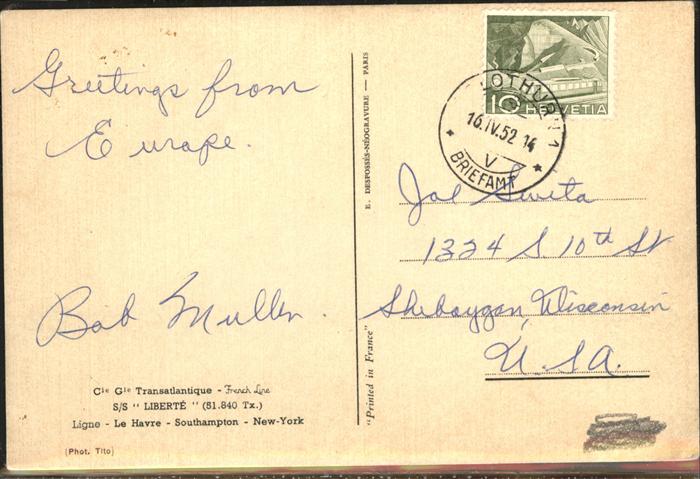 Greetings from
Europe.
Bob Mullen.
Cie Gle Transatlantique - French Line
S/S " LIBERTÉ " (51.840 Tx.)
Ligne - Le Havre - Southampton - New-York
(Phot. Tito)
E. DESFOSSÉS-NÉOGRAVURE — PARIS
"Printed in France"
10 HELVETIA
16.IV.52 14
V
BRIEFAMT
1324 S 10th St
Sheboygan, Wisconsin
U.S.A.